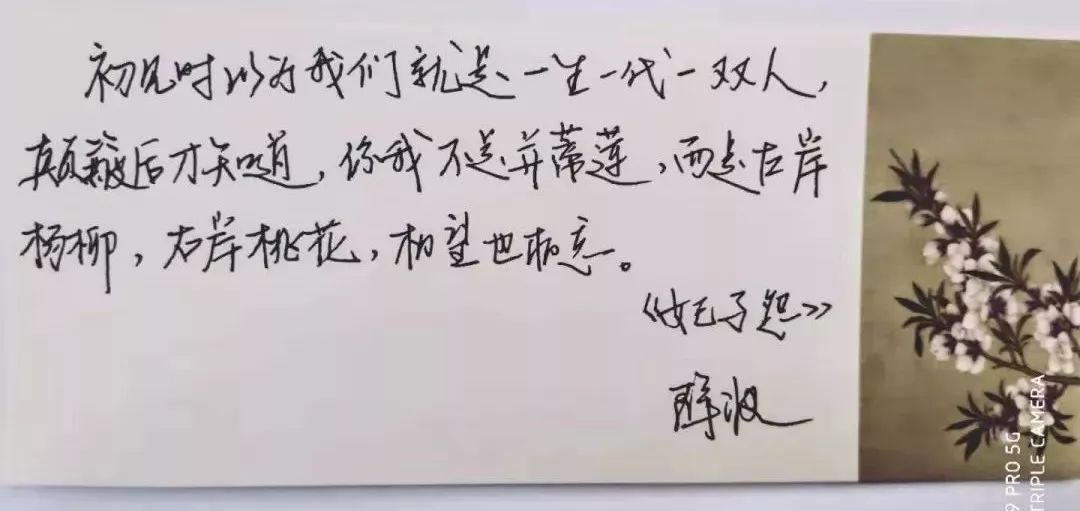 初见时以为我们就是一生一代一双人,
颠簸后才知道,你我不是并蒂莲,而是左岸
杨柳,右岸桃花,相望也相忘。
《妃子怨》
9 PRO 5G
TRIPLE CAMERA